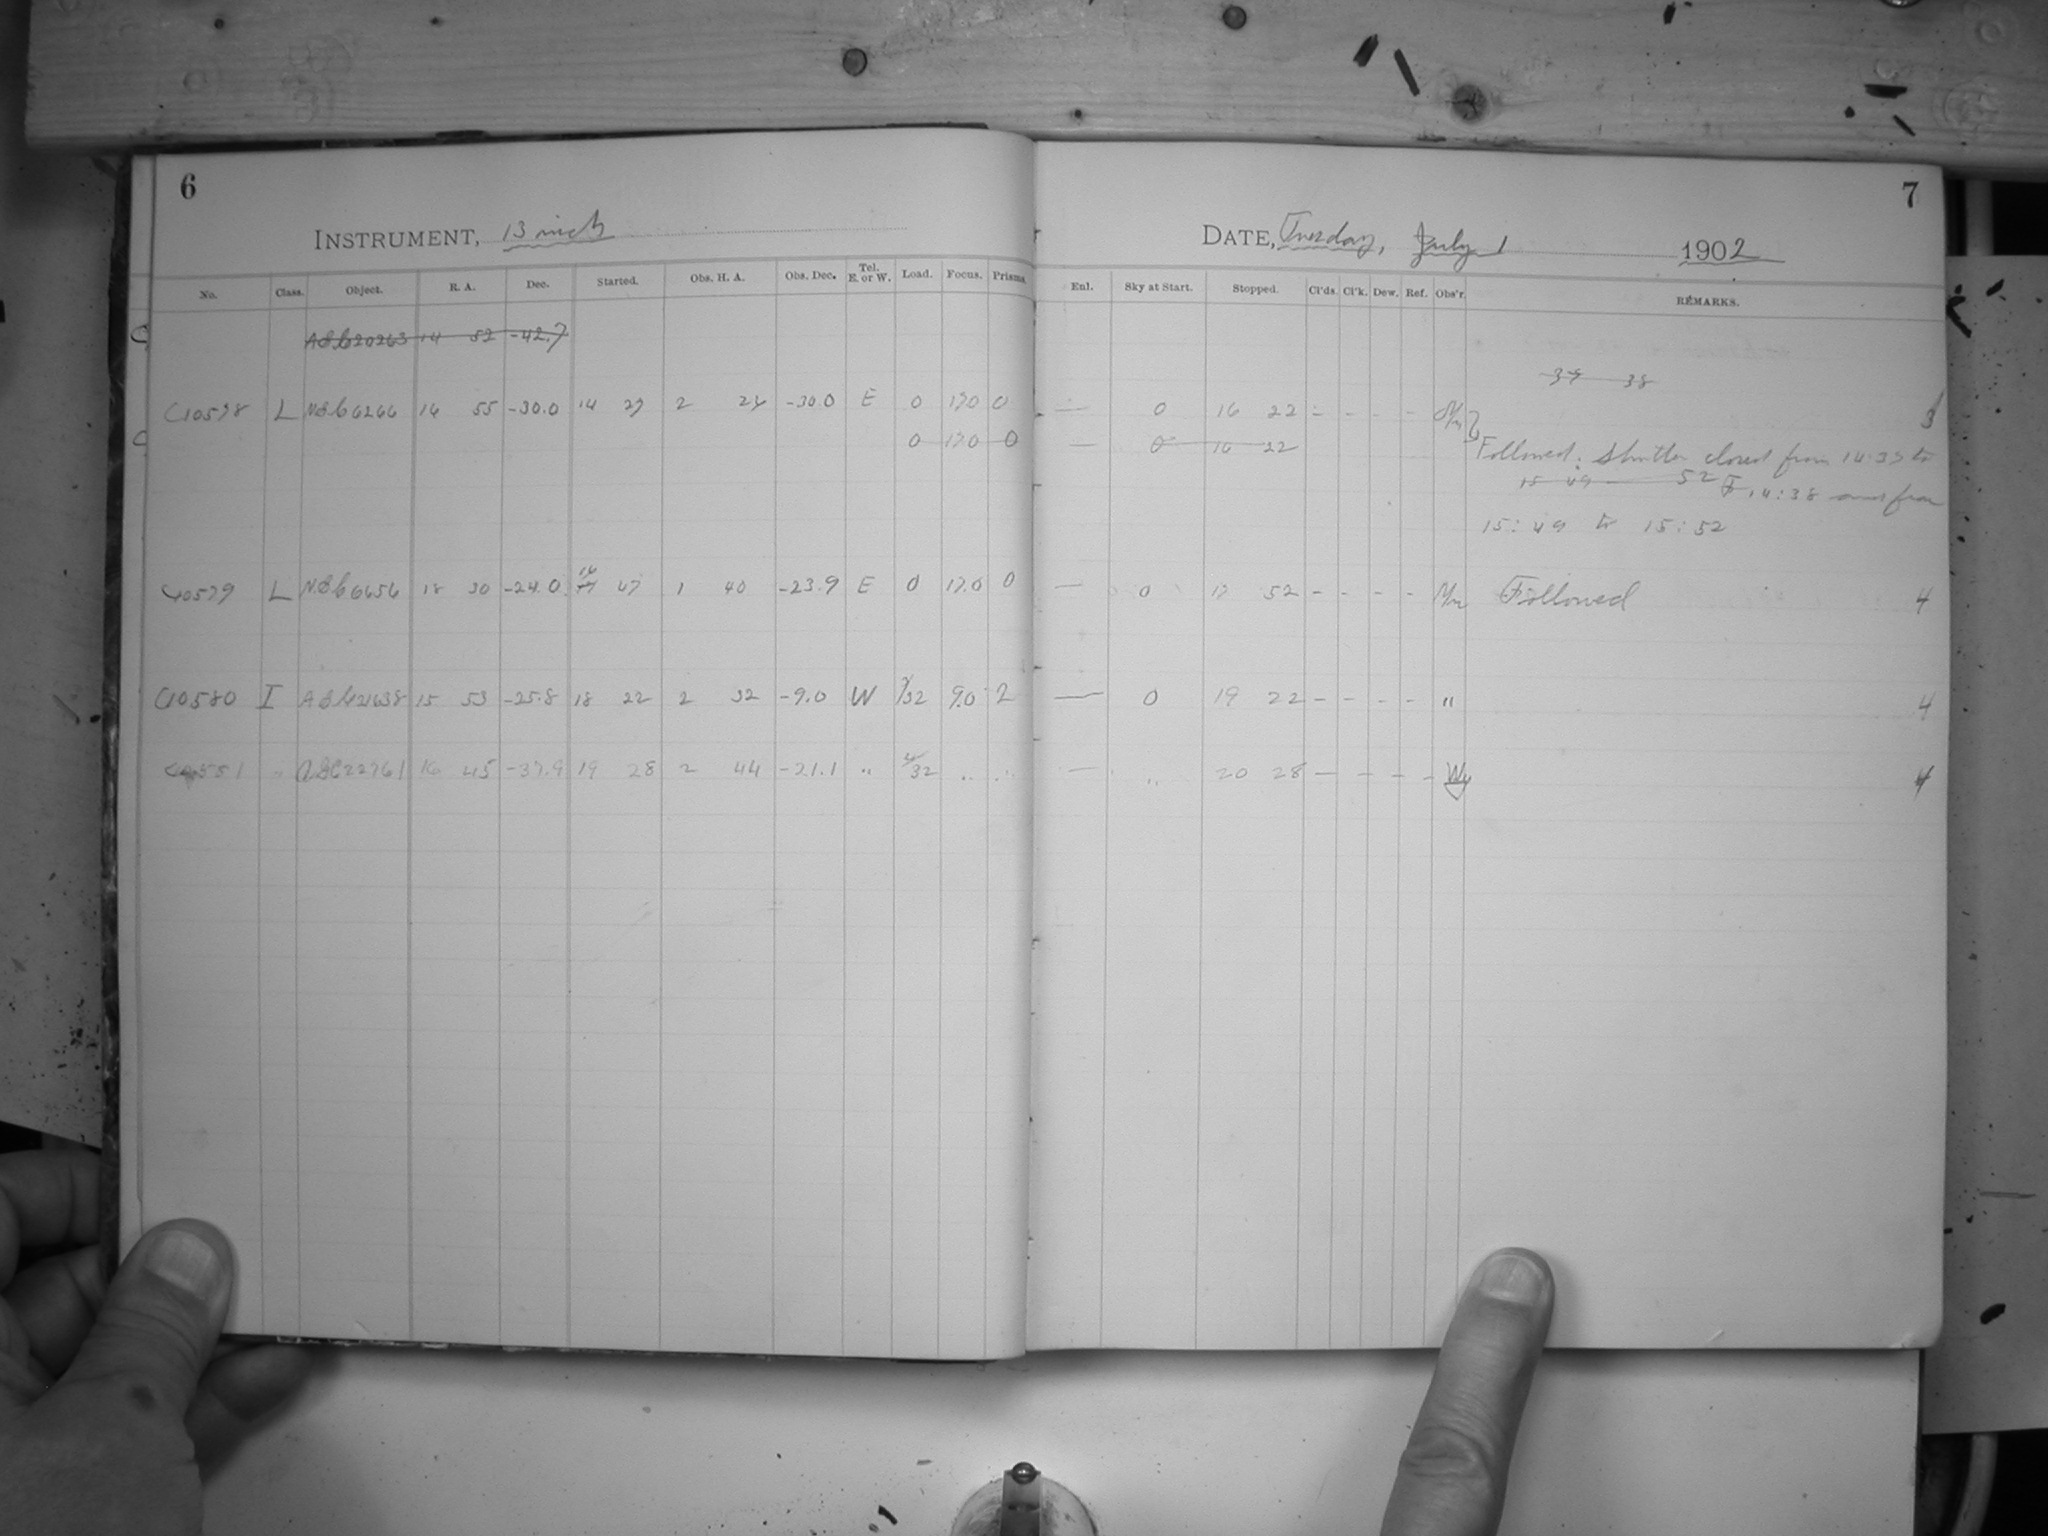 6
INSTRUMENT, 13 inch
No. Class. Object. R. A. Dec. Started. Obs. H. A. Obs. Dec. Tel. E. or W. Load. Focus. Prisms.
14 52 -42.7
C10578 L 55 -30.0 14 27 2 -30.0 E 0 17.0 0
0 17.0 0
C10579 L N.G.C. 6656 18 30 -24.0 47 1 40 -23.9 E 0 17.0 0
C10580 I 15 53 -25.8 18 22 2 32 -9.0 W 9.0 2
16 45 -37.9 19 28 2 44 -21.1 " " "
7
DATE, Tuesday, July 1 1902
Enl. Sky at Start. Stopped. Cl'ds. Cl'k. Dew. Ref. Obs'r. REMARKS.
37 38
— 0 16 22 - - - - 3
— 0 16 22 Followed. Shutter closed from 14:37 to
15 49 — 52 14:38 and from
15:49 to 15:52
— 0 17 52 - - - - Followed 4
— 0 19 22 - - - - " 4
— " 20 28 - - - - 4